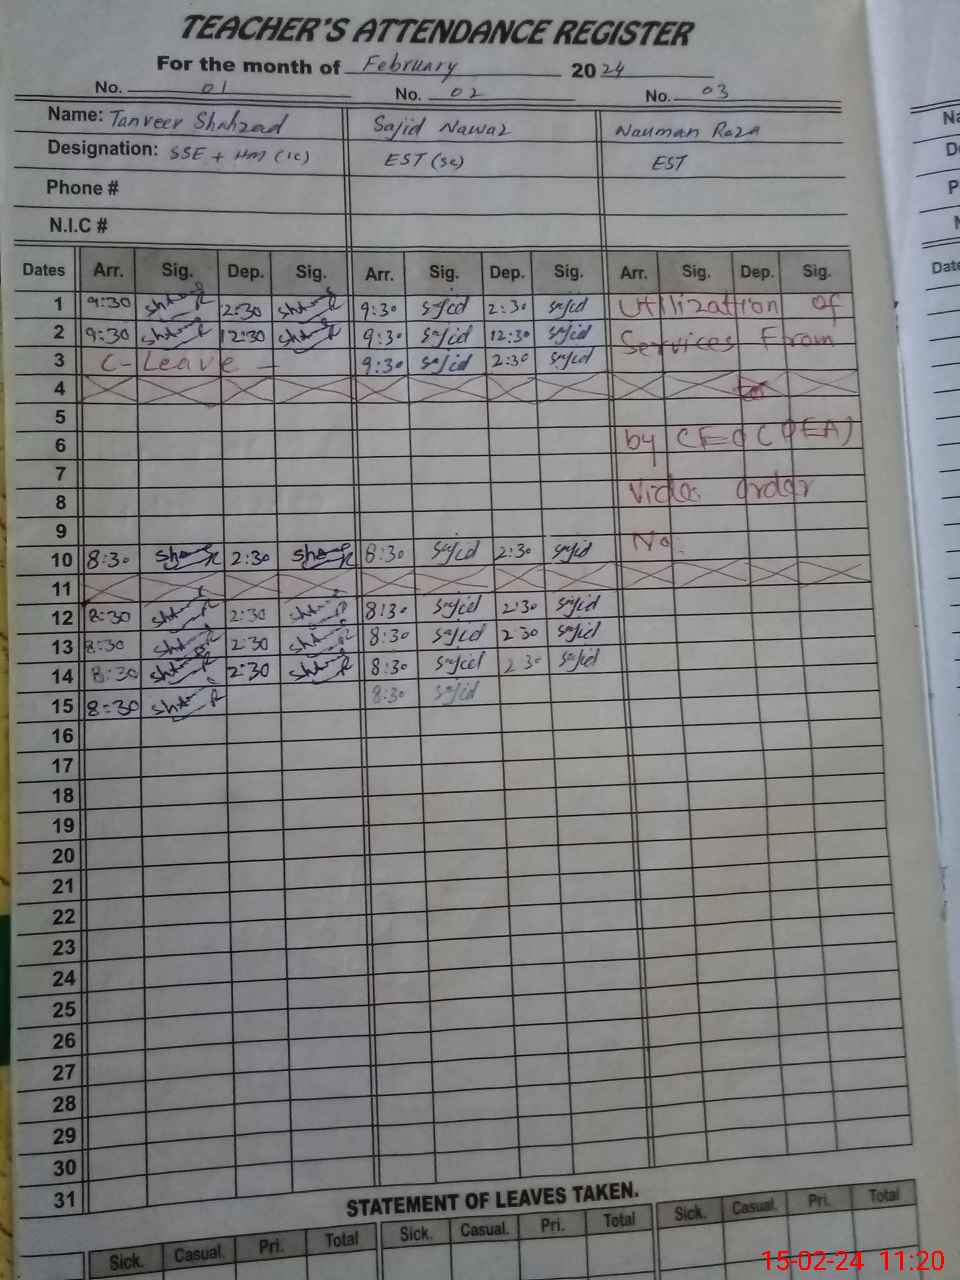 TEACHER'S ATTENDANCE REGISTER
For the month of February 2024
No. 01 No. 02 No. 03
Name: Tanveer Shahzad Sajid Nawaz Nauman Raza
Designation: SSE + HM (IC) EST (SC) EST
Phone #
N.I.C #
Dates Arr. Sig. Dep. Sig. Arr. Sig. Dep. Sig. Arr. Sig. Dep. Sig.
1 9:30 2:30 9:30 sajid 2:30 sajid Utilization of
2 9:30 12:30 9:30 sajid 12:30 sajid Services From
3 C-Leave - 9:30 sajid 2:30 sajid
4 to
5
6 by CEO (DEA)
7
8 Vide order
9
10 8:30 2:30 8:30 sajid 2:30 sajid No.
11
12 8:30 2:30 8:30 sajid 2:30 sajid
13 8:30 2:30 8:30 sajid 2:30 sajid
14 8:30 2:30 8:30 sajid 2:30 sajid
15 8:30 8:30 sajid
16
17
18
19
20
21
22
23
24
25
26
27
28
29
30
31
STATEMENT OF LEAVES TAKEN.
Sick. Casual. Pri. Total Sick. Casual. Pri. Total Sick. Casual. Pri. Total
Na
D
P
N
Date
15-02-24 11:20